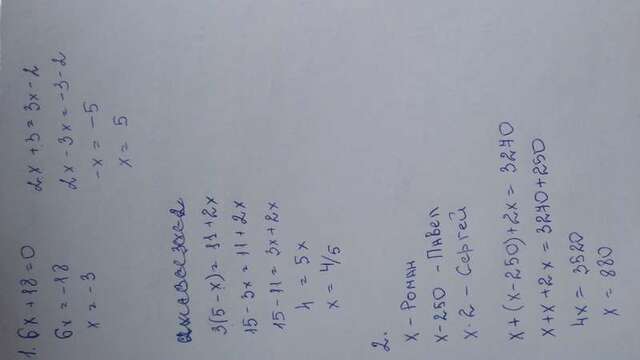 1. 6x + 18 = 0
6x = -18
x = -3
2x + 3 = 3x - 2
2x - 3x = -3 - 2
-x = -5
x = 5
3(5 - x) = 11 + 2x
15 - 3x = 11 + 2x
15 - 11 = 3x + 2x
4 = 5x
x = 4/5
2.
x - Роман
x-250 - Павел
x·2 - Сергей
x + (x - 250) + 2x = 3270
x + x + 2x = 3270 + 250
4x = 3520
x = 880